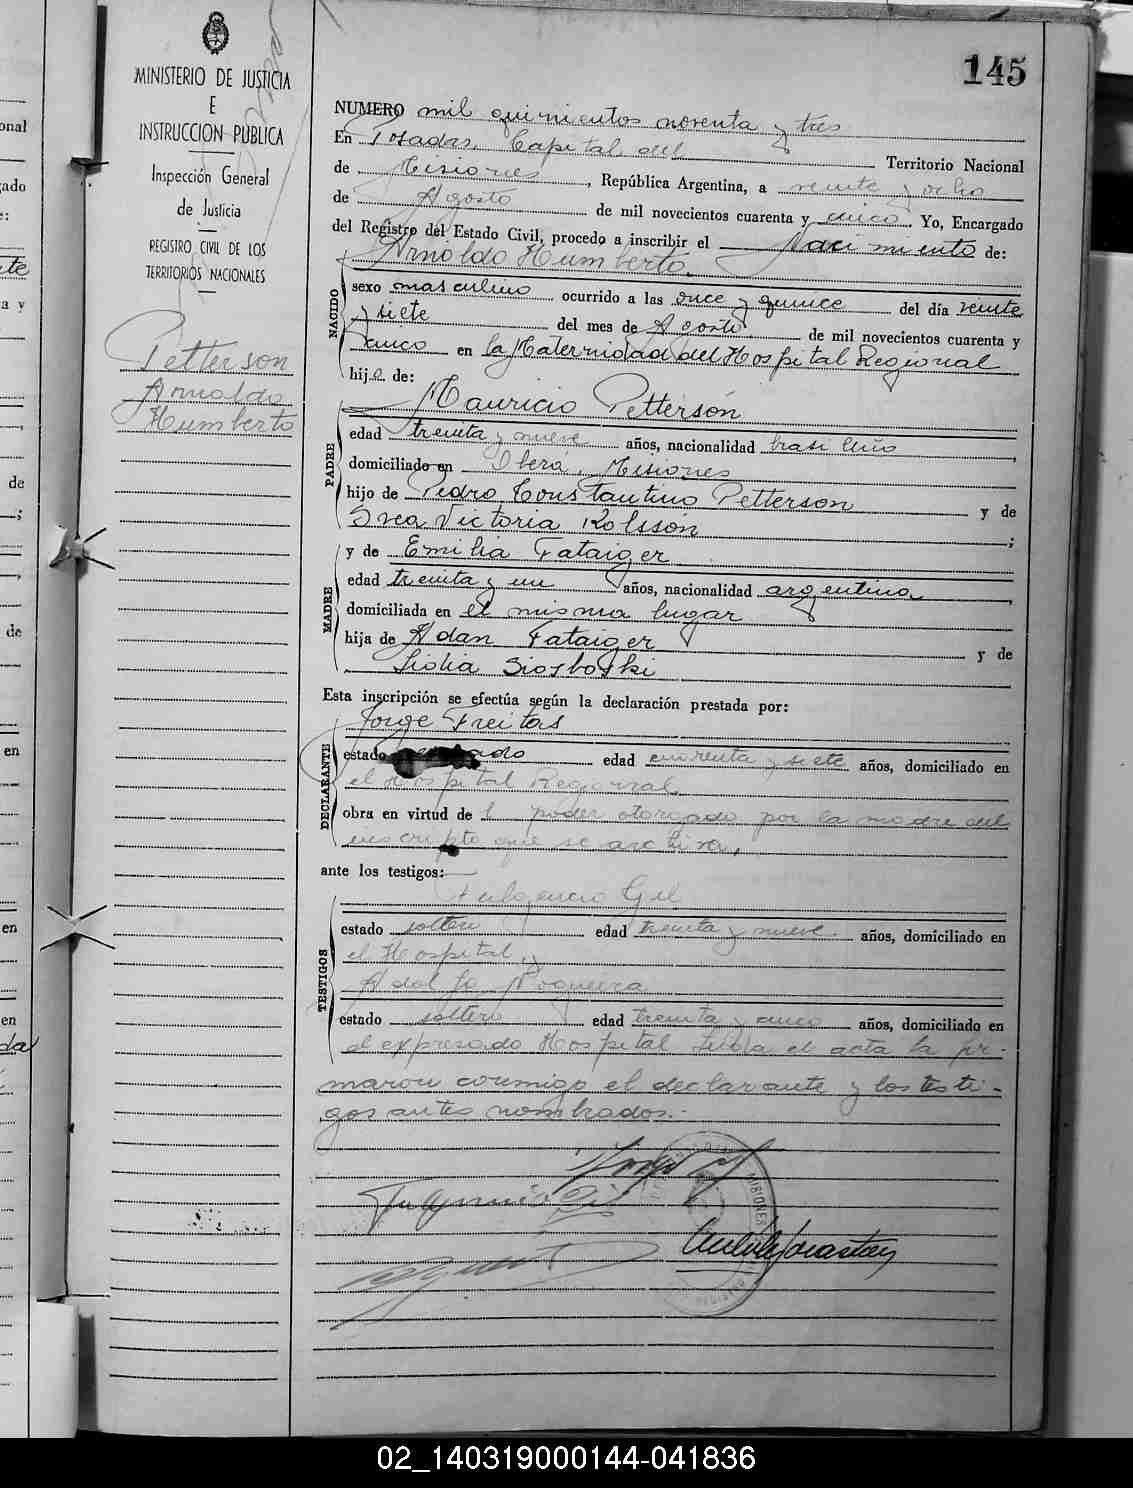 145
MINISTERIO DE JUSTICIA
E
INSTRUCCION PUBLICA
Inspección General
de Justicia
REGISTRO CIVIL DE LOS
TERRITORIOS NACIONALES
Petterson
Arnoldo
Humberto
NUMERO mil quinientos noventa y tres
En Posadas, Capital del Territorio Nacional
de Misiones, República Argentina, a veinte y ocho
de Agosto de mil novecientos cuarenta y cinco Yo, Encargado
del Registro del Estado Civil, procedo a inscribir el Nacimiento de:
Arnoldo Humberto.
NACIDO
sexo masculino ocurrido a las once y quince del día veinte
y siete del mes de Agosto de mil novecientos cuarenta y
cinco en la Maternidad del Hospital Regional
hijo de:
Mauricio Petterson
PADRE
edad treinta y nueve años, nacionalidad brasileño
domiciliado en Oberá, Misiones
hijo de Pedro Constantino Petterson y de
Svea Victoria Kolsson;
y de Emilia Fataiger
MADRE
edad treinta y un años, nacionalidad argentina
domiciliada en el mismo lugar
hija de Adan Fataiger y de
Esta inscripción se efectúa según la declaración prestada por:
Jorge Freitas
DECLARANTE
estado edad cuarenta y siete años, domiciliado en
el Hospital Regional
obra en virtud de l poder otorgado por la madre del
inscripto que se archiva,
ante los testigos:
Fulgencio Gil
TESTIGOS
estado soltero edad treinta y nueve años, domiciliado en
el Hospital, y
Adolfo Nogueira
estado soltero edad treinta y cinco años, domiciliado en
el expresado Hospital. Leida el acta la fir-
maron conmigo el declarante y los testi-
gos antes nombrados.-
MISIONES
02_140319000144-041836